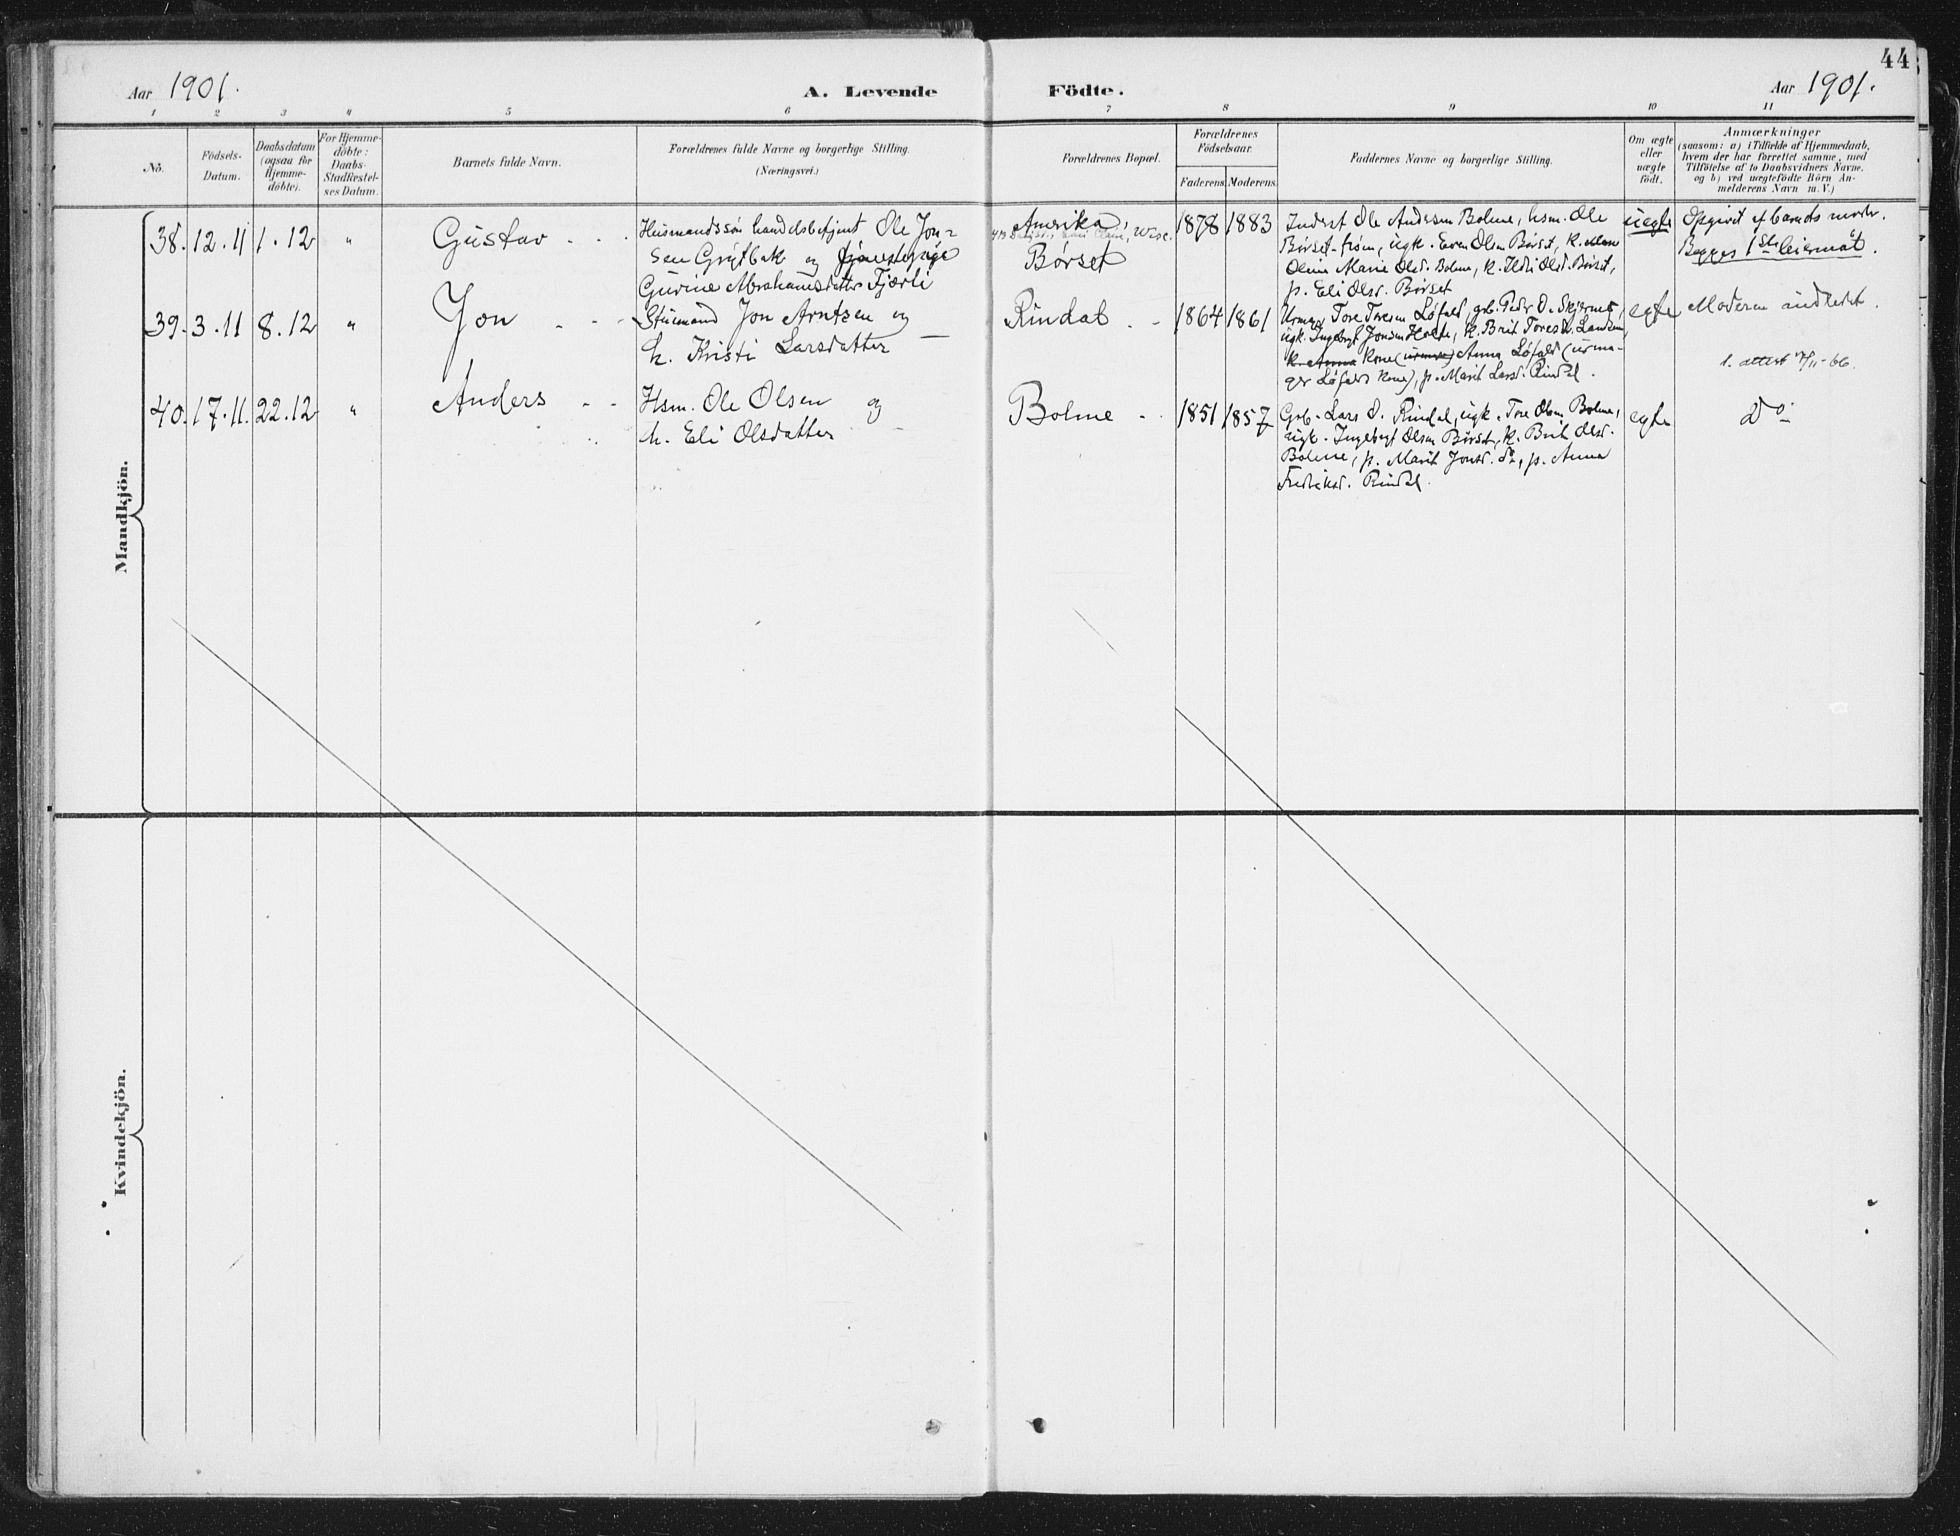 44
Aar 1901.
A. Levende Födte.
Aar 1901.
1 2 3 4 5 6 7 8 9 10 11
No.
Födsels-
Datum.
Daabsdatum
(ogsaa for
Hjemme-
döbte).
For Hjemme-
döbte:
Daabs-
Stadfæstel-
ses Datum.
Barnets fulde Navn.
Forældrenes fulde Navne og borgerlige Stilling.
(Næringsvei.)
Forældrenes Bopæl.
Forældrenes
Födselsaar.
Faderens. Moderens.
Faddernes Navne og borgerlige Stilling.
Om ægte
eller
uægte
födt.
Anmærkninger
(saasom: a) i Tilfælde af Hjemmedaab,
hvem der har forrettet samme, med
Tilföielse af to Daabsvidners Navne,
og b) ved uægtefödte Börn An-
melderens Navn m. V.)
Mandkjön.
38. 12.11 1.12 " Gustav
Husmandssøn handelsbetjent Ole Jon-
sen Grytbak og
Gurine Abrahamsdatter Fjærli
Amerika,
Wisc.
Børset
1878 1883
Inderst Ole Andersen Bolme, hsm. Ole
Børset, ugk. Even Olsen Børset, k.
Oline Marie Olsd. Bolme, k. Ildri Olsd. Børset,
p. Eli Olsd. Børset
uegte
Opgivet af barnets moder.
Begges 1ste leiermåt.
39. 3.11 8.12 " Jon
Stuemand Jon Arntzen og
h. Kristi Larsdatter
Rindal
1864 1861
Urmag. Tore Toresen Løfald, grb. Peder O. Skjermo,
ugk. Ingebrigt Jonsen Holte, k. Brit Toresd.
kone Anna Løfald (urma-
ger Løfalds kone), p. Marit Larsd. Rindal.
egte
Moderen indledet.
1. attest 11-66.
40. 17.11. 22.12 " Anders
Hsm. Ole Olsen og
h. Eli Olsdatter
Bolme
1851 1857
Grb. Lars O. Rindal, ugk. Tore Olsen Bolme,
ugk. Ingebrigt Olsen Børset, k. Brit Olsd.
Bolme, p. Marit Jonsd. do, p. Anna
Fredriksd. Rindal.
egte
Do
Kvindekjön.